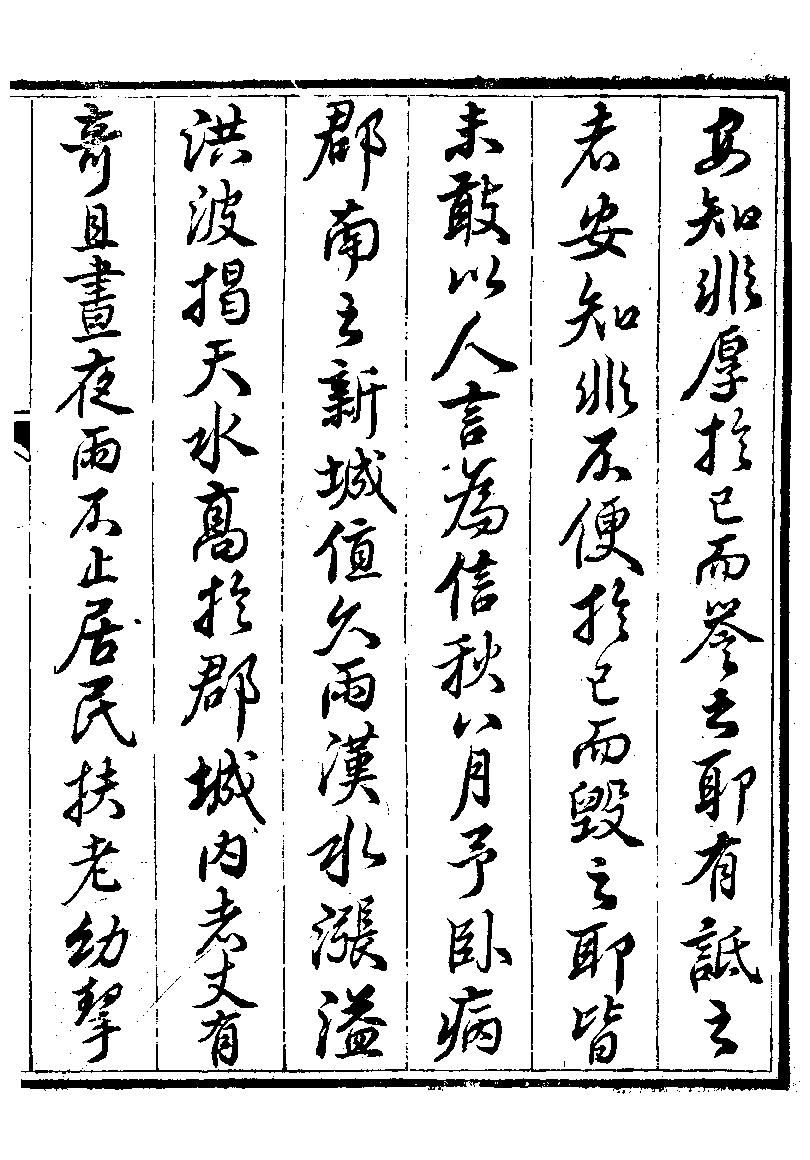 安知非厚於已而譽之耶有詆之
者安知非不便於已而毀之耶皆
未敢以人言為信秋八月予卧病
郡南之新城値久雨漢水漲溢
洪波掲天水髙於郡城内者丈有
竒且晝夜雨不止居民扶老幼挈